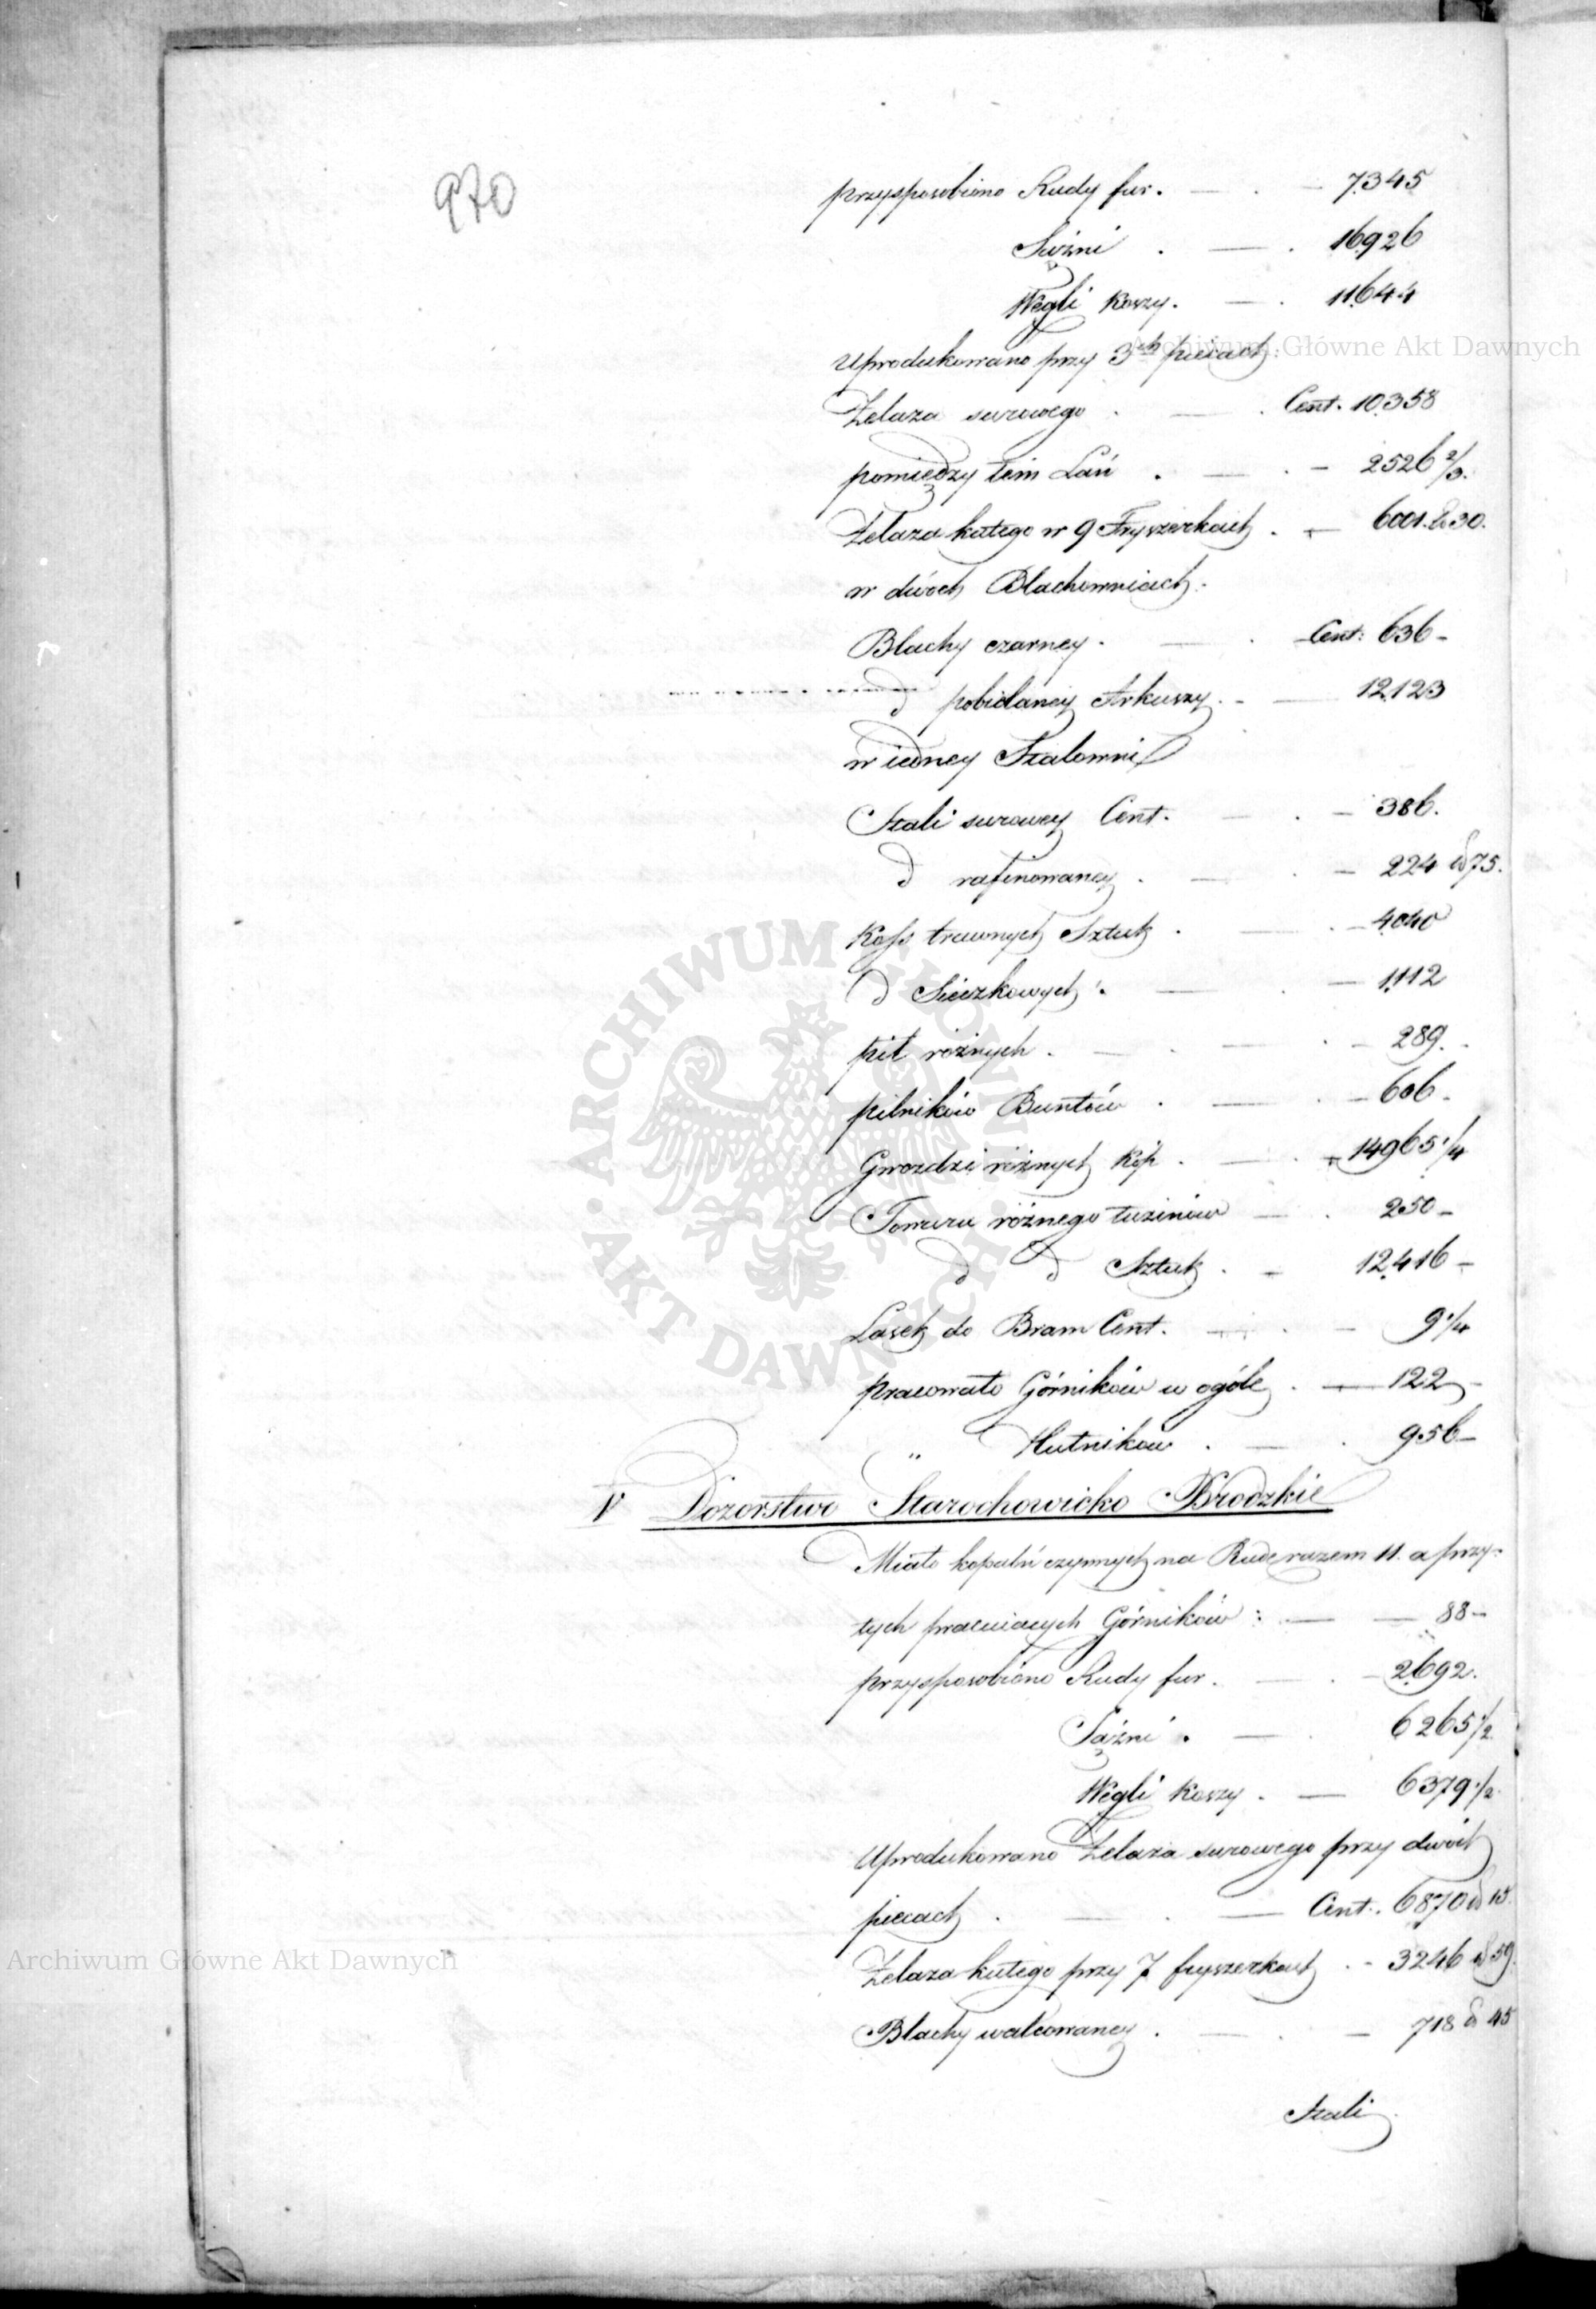 970
przysposobiono Rudy fur. — . — 7345
Sążni . — . 16926
Węgli Koszy. — . 11.644
Uprodukowano przy 3ch piecach.
Żelaza surowego . — . Cent. 10.358
pomiędzy tem Lań . — . — 2526 2/3.
Żelaza kutego w 9 Fryszerkach . — 6001. 30.
w dwóch Blachowniach.
Blachy czarney. — . Cent: 636 –
d pobielaney Arkuszy . — 12.123
w iedney Stalowni
Stali surowey Cent. — . — 386.
d rafinowaney . — . — 224 75.
Koss trawnych Sztuk . — . — 4.040
d Sieczkowych . — . — 1.112
pił różnych . — . — . — 289.
pilników Buntów . — . — 606 –
Gwozdzi różnych Kóp . — . — 14965 1/4
Towaru różnego tuzinów — . 250 –
d d Sztuk . — 12.416 –
Lasek do Bram Cent. — . — 9 1/4
pracowało Górników w ogóle . — 122 –
„ Hutników . — . 956 –
V Dozorstwo Starochowicko Brodzkie
Miało kopalń czynnych na Rudę razem 11. a przy
tych pracuiących Górników : — — 88 –
przysposobiono Rudy fur. — . — 2692.
Sążni . — . 6265 1/2
Węgli Koszy . — 6379 1/2
Uprodukowano Żelaza surowego przy dwóch
piecach . — . — Cent. 6870 15
Żelaza kutego przy 7 fryszerkach . – 3246 59.
Blachy walcowaney . — . — 718 45
Stali
Archiwum Główne Akt Dawnych
Archiwum Główne Akt Dawnych
ARCHIWUM GŁÓWNE AKT DAWNYCH